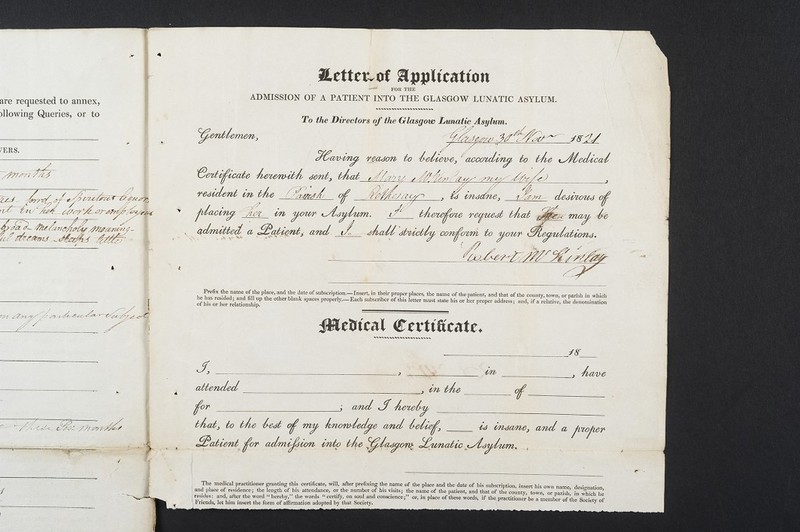 are requested to annex,
ollowing Queries, or to
VERS.
months
fond of Spiritous liquor
in her work or employ
melancholy moaning
dreams sleeps little
on any particular Subject
Six months
Letter of Application
FOR THE
ADMISSION OF A PATIENT INTO THE GLASGOW LUNATIC ASYLUM.
To the Directors of the Glasgow Lunatic Asylum.
Gentlemen, Glasgow 30th Novr 1821
Having reason to believe, according to the Medical
Certificate herewith sent, that Mary McKinlay my wife,
resident in the Parish of Rothesay, is insane, I am desirous of
placing her in your Asylum. I therefore request that She may be
admitted a Patient, and I shall strictly conform to your Regulations.
Robert McKinlay
Prefix the name of the place, and the date of subscription.—Insert, in their proper places, the name of the patient, and that of the county, town, or parish in which
he has resided; and fill up the other blank spaces properly.—Each subscriber of this letter must state his or her proper address; and, if a relative, the denomination
of his or her relationship.
Medical Certificate.
18
I, , in , have
attended , in the of
for ; and I hereby
that, to the best of my knowledge and belief, is insane, and a proper
Patient for admission into the Glasgow Lunatic Asylum.
The medical practitioner granting this certificate, will, after prefixing the name of the place and the date of his subscription, insert his own name, designation,
and place of residence; the length of his attendance, or the number of his visits; the name of the patient, and that of the county, town, or parish, in which he
resides: and, after the word "hereby," the words "certify, on soul and conscience;" or, in place of these words, if the practitioner be a member of the Society of
Friends, let him insert the form of affirmation adopted by that Society.